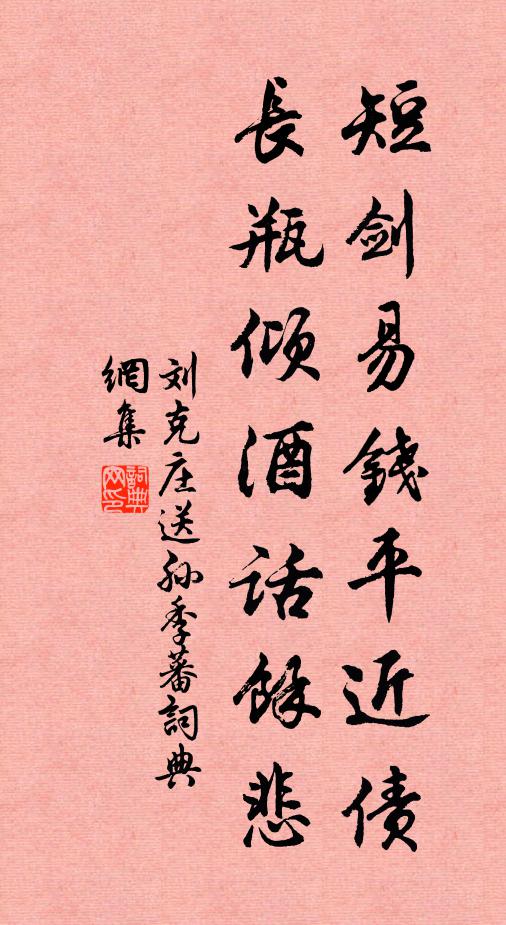 短剑易錢平近债
長瓶倾酒話餘悲
刘克庄送孙季蕃詞典
網集
詞典
网印